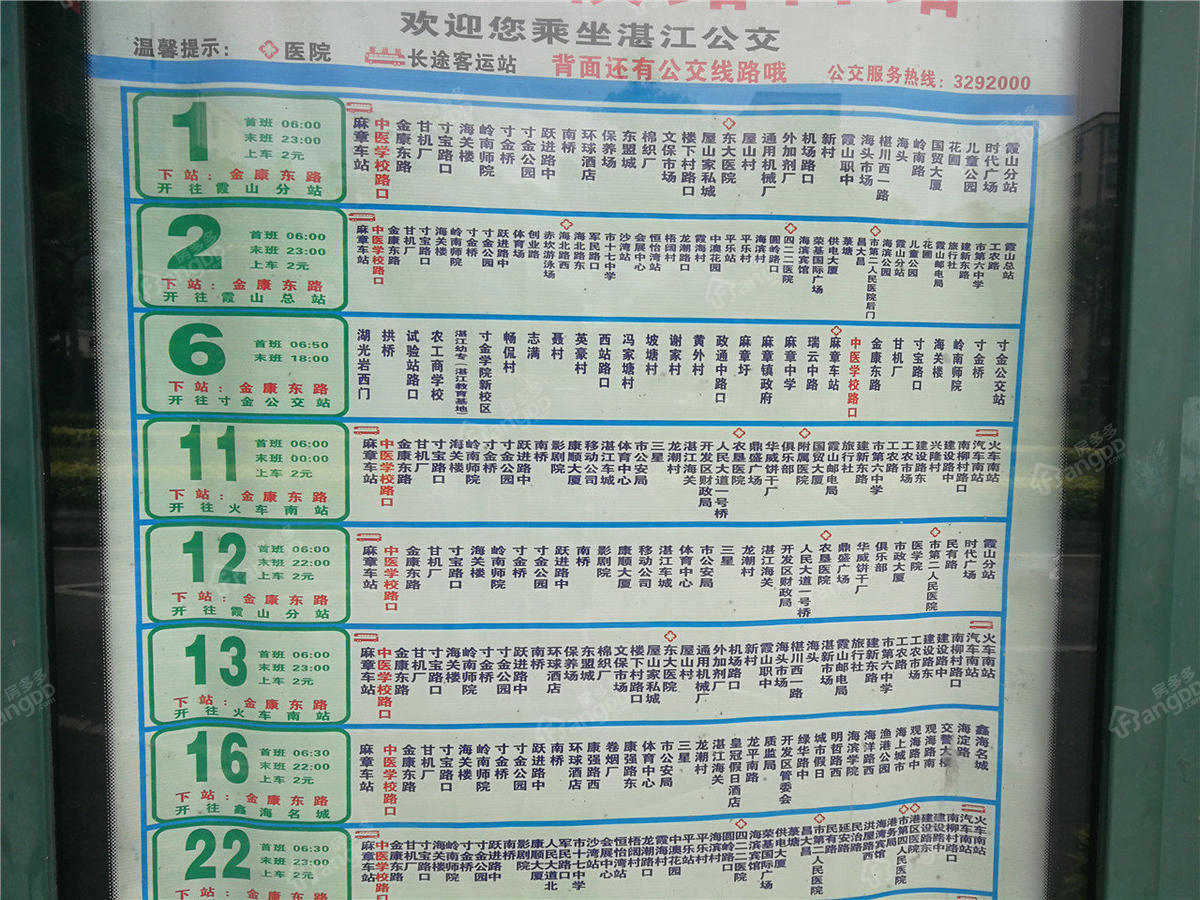 欢迎您乘坐湛江公交
温馨提示： 医院 客运站 长途客运站 背面还有公交线路哦 公交服务热线：3292000
1
首班 06:00
末班 23:00
上车 2元
下站：金康东路
开往霞山分站
麻章车站
中医学校路口
金康东路
甘机厂
寸宝路口
海关楼
岭南师院
寸金桥
寸金公园
跃进路中
南桥
环球酒店
保养场
东盟城
棉织厂
文保市场
楼下村路口
屋山家私城
东大医院
屋山村
通用机械厂
外加剂厂
机场路口
新村
霞山职中
海头市场
椹川西一路
海头
岭南路
国贸大厦
花圃
儿童公园
时代广场
霞山分站
2
首班 06:00
末班 23:00
上车 2元
下站：金康东路
开往霞山总站
麻章车站
中医学校路口
金康东路
甘机厂
寸宝路口
海关楼
岭南师院
寸金桥
寸金公园
跃进路中
体育场
创业路
赤坎游泳场
海北路西
海北路东
军民路口
市十七中学
沙湾站
会展中心
恒怡湾站
梧阔村
龙潮路口
霞海村
中澳花园
平乐站
平乐村
海滨村
圆岭路口
四二二医院
海滨宾馆
荣基国际广场
供电大厦
菉塘
昌大昌
市第二人民医院后门
海滨公园
霞山分站
儿童公园
花圃
霞山邮电局
旅行社
建新东路
市第六中学
工农路
霞山总站
6
首班 06:50
末班 18:00
下站：金康东路
开往寸金公交站
湖光岩西门
拱桥
试验站路口
农工商学校
湛江幼专（湛江教育基地）
寸金学院新校区
畅侃村
志满
聂村
英豪村
西站路口
冯家塘村
坡塘村
谢家村
黄外村
政通中路口
麻章圩
麻章镇政府
麻章中学
瑞云中路
麻章车站
中医学校路口
金康东路
甘机厂
寸宝路口
海关楼
岭南师院
寸金桥
寸金公交站
11
首班 06:00
末班 00:00
上车 2元
下站：金康东路
开往火车南站
麻章车站
中医学校路口
金康东路
甘机厂
寸宝路口
海关楼
岭南师院
寸金桥
寸金公园
跃进路中
南桥
影剧院
康顺大厦
移动公司
湛江车城
体育中心
市公安局
三星
龙潮村
湛江海关
开发区财政局
人民大道一号桥
农垦医院
鼎盛广场
华威饼干厂
俱乐部
附属医院
国贸大厦
霞山邮电局
旅行社
建新东路
市第六中学
工农路
工农市场
建设路东
兴隆村
建设路中
南柳村路口
汽车南站
火车南站
12
首班 06:00
末班 22:00
上车 2元
下站：金康东路
开往霞山分站
麻章车站
中医学校路口
金康东路
甘机厂
寸宝路口
海关楼
岭南师院
寸金桥
寸金公园
跃进路中
南桥
影剧院
康顺大厦
移动公司
湛江车城
体育中心
市公安局
三星
龙潮村
湛江海关
开发区财政局
人民大道一号桥
农垦医院
鼎盛广场
华威饼干厂
俱乐部
市政大厦
医学院
市第二人民医院
民有路
时代广场
霞山分站
13
首班 06:00
末班 23:00
上车 2元
下站：金康东路
开往火车南站
麻章车站
中医学校路口
金康东路
甘机厂
寸宝路口
海关楼
岭南师院
寸金桥
寸金公园
跃进路中
南桥
环球酒店
保养场
东盟城
棉织厂
文保市场
楼下村路口
屋山家私城
东大医院
屋山村
通用机械厂
外加剂厂
机场路口
新村
霞山职中
海头市场
椹川西一路
海头
湛新市场
霞山邮电局
旅行社
建新东路
市第六中学
工农路
工农市场
建设路东
建设路中
南柳村路口
汽车南站
火车南站
16
首班 06:30
末班 22:00
上车 2元
下站：金康东路
开往鑫海名城
麻章车站
中医学校路口
金康东路
甘机厂
寸宝路口
海关楼
岭南师院
寸金桥
寸金公园
跃进路中
南桥
环球酒店
康强路西
卷烟厂
康强路东
体育中心
市公安局
三星
龙潮村
湛江海关
皇冠假日酒店
龙平南路
质监局
开发区管委会
绿华路中
城市假日
明哲路西
海滨学院
海洋路西
渔港公园
海上城市
观海路中
观海路南
交警大楼
海淀路
鑫海名城
22
首班 06:30
末班 23:00
上车 2元
下站：金康东路
麻章车站
中医学校路口
金康东路
甘机厂
寸宝路口
海关楼
岭南师院
寸金桥
寸金公园
跃进路中
南桥
影剧院
康顺大厦
人民大道北
军民路口
市十七中学
沙湾站
会展中心
恒怡湾站
梧阔村
龙潮路口
霞海村
中澳花园
平乐站
平乐村
海滨村
圆岭路口
四二二医院
海滨宾馆
荣基国际广场
供电大厦
菉塘
昌大昌
市第二人民医院
民有路
延安路
民治路
洪屋路西
海湾宾馆
港务局
市第四人民医院
港区医院
建设路东
建设路中
南柳村路口
汽车南站
火车南站